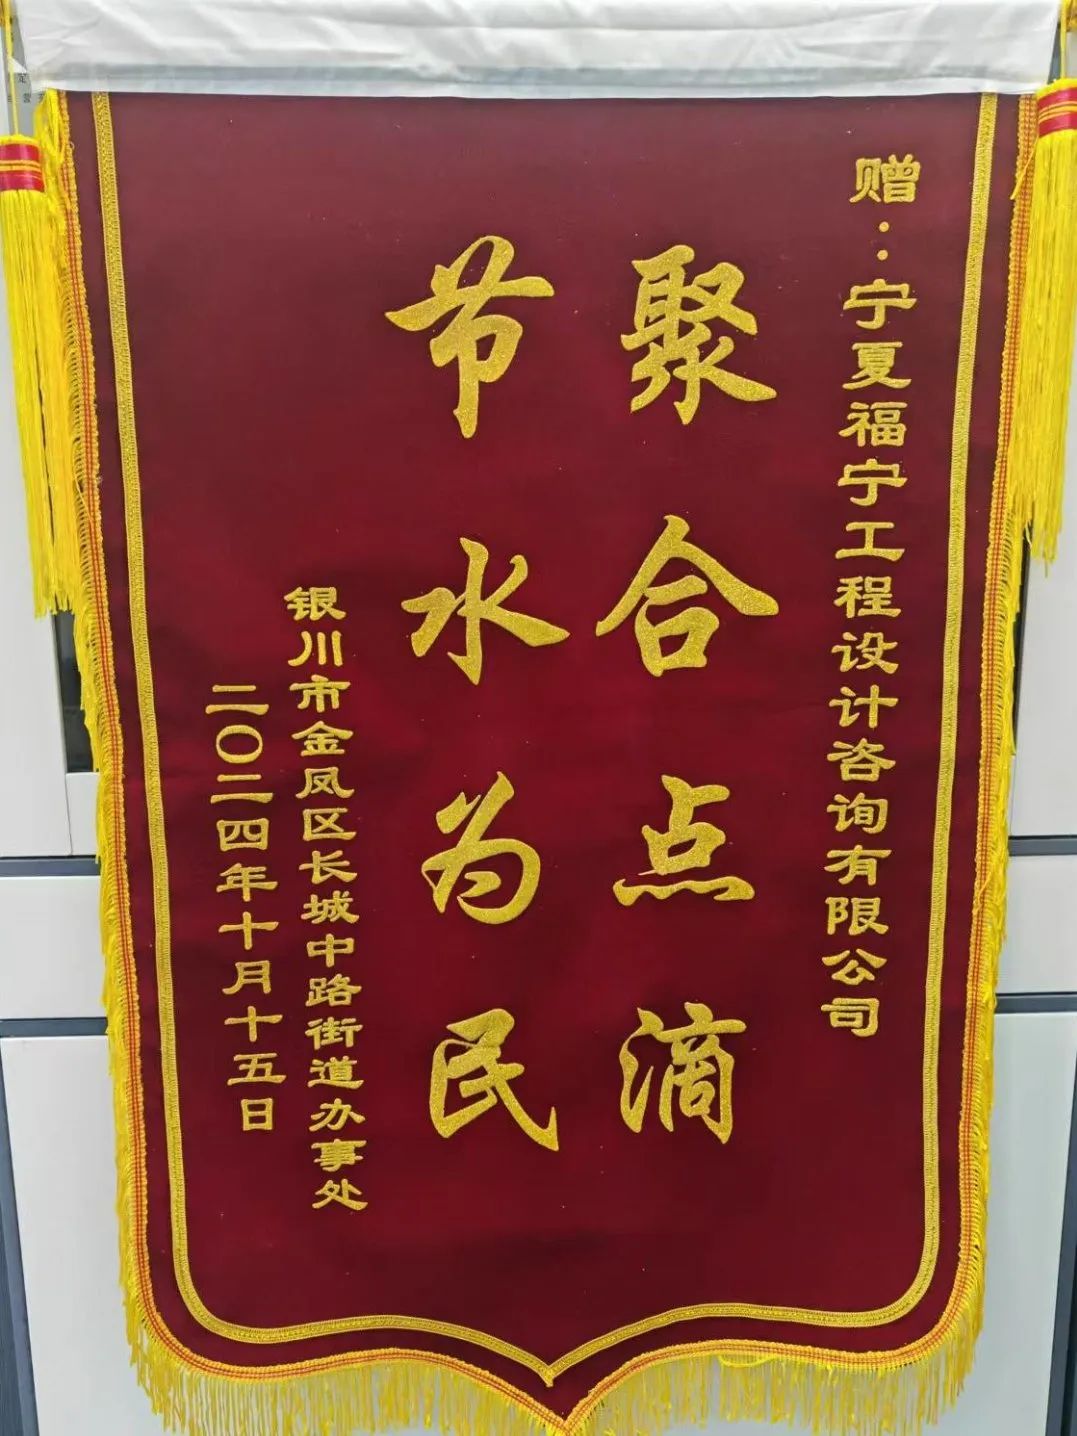 赠：宁夏福宁工程设计咨询有限公司
聚合点滴
节水为民
银川市金凤区长城中路街道办事处
二〇二四年十月十五日